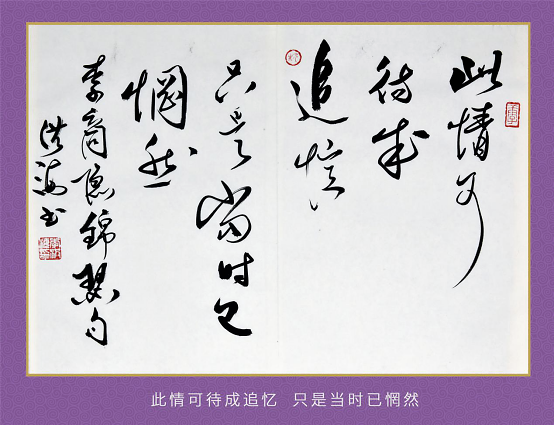 此情可
待成
追憶
只是
當时已
惘然
李商隐錦瑟句
洪海书
此情可待成追忆 只是当时已惘然